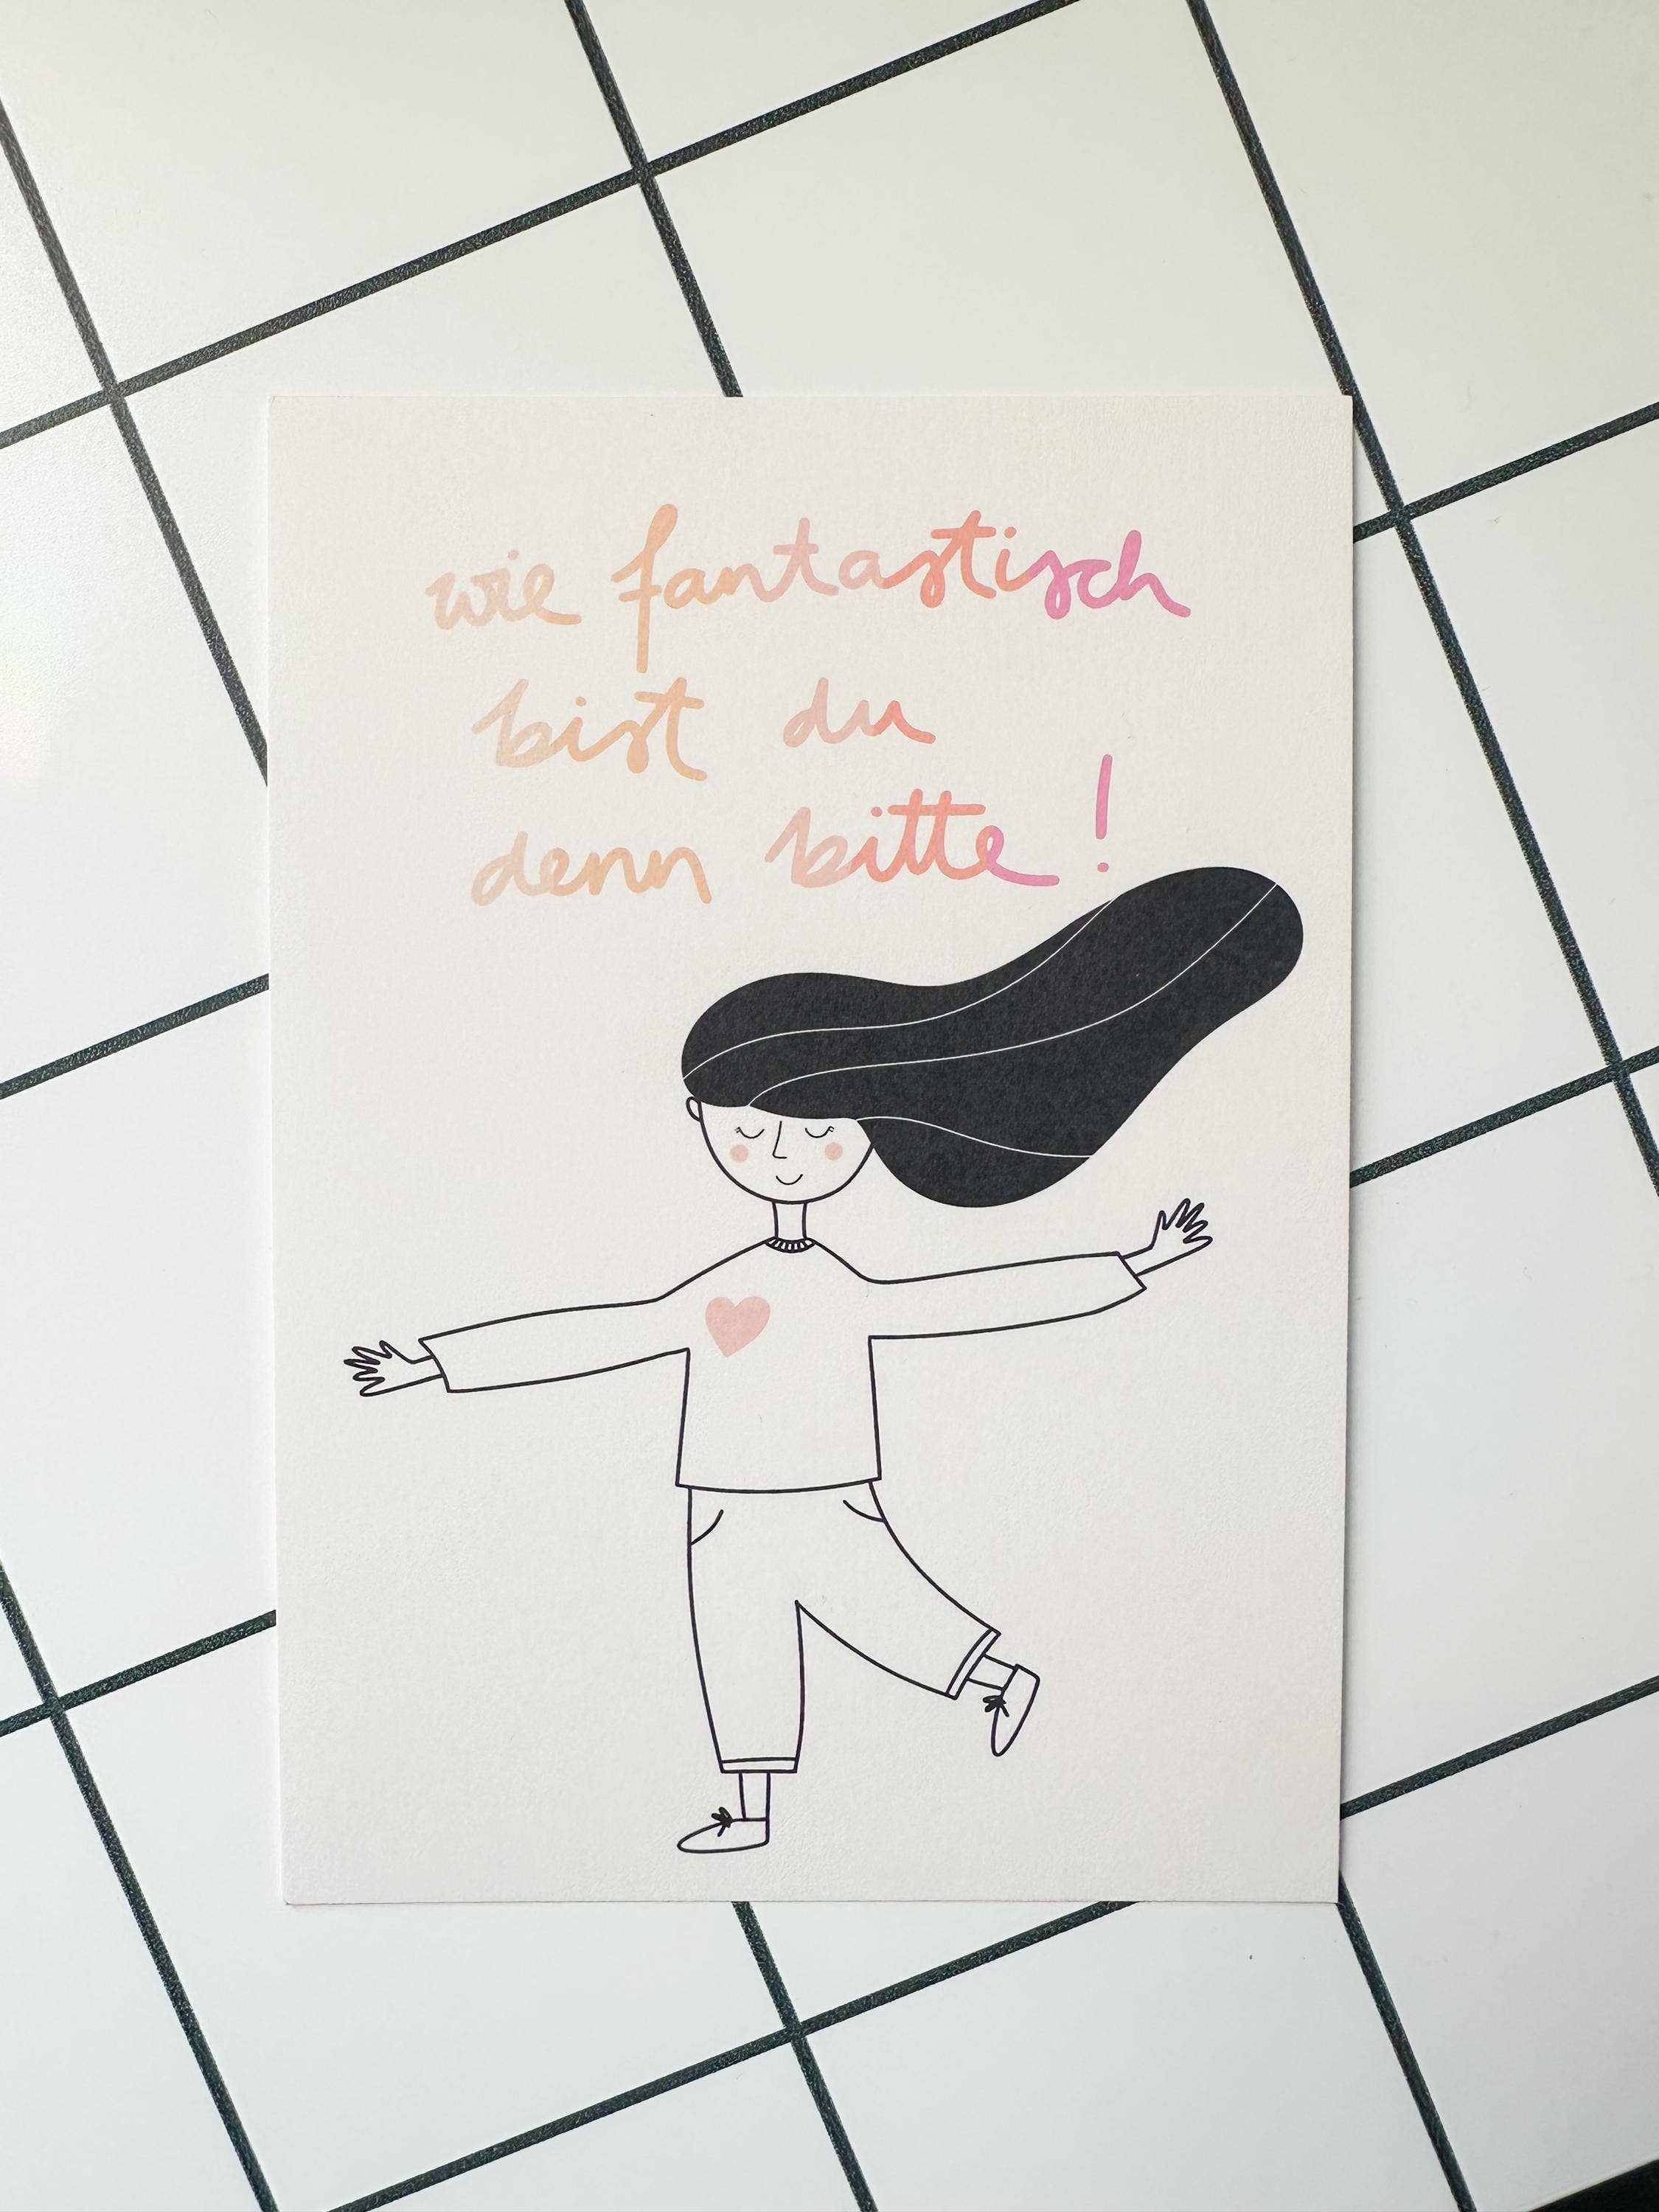 wie fantastisch
bist du
denn bitte!